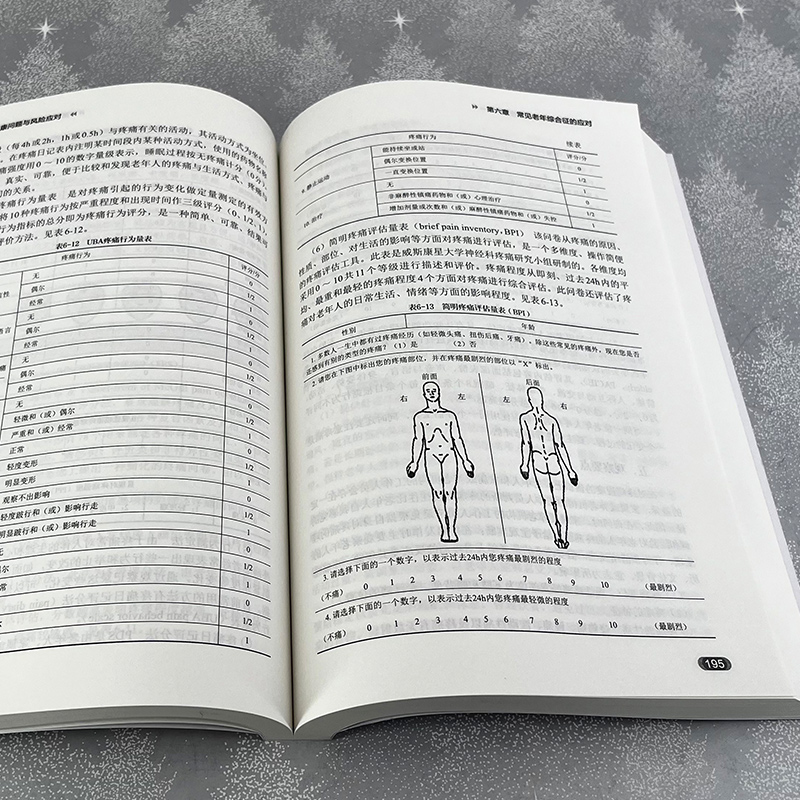 康问题与风险应对
(每4h或2h,1h或0.5h)与疼痛有关的活动,其活动方式为坐位、
在疼痛日记表内注明某时间段内某种活动方式,使用的药物名称
痛强度用0~10的数字量级表示,睡眠过程按无疼痛计分(0分)。
真实、可靠,便于比较和发现老年人的疼痛与生活方式、疼痛与
的关系。
疼痛行为量表 是对疼痛引起的行为变化做定量测定的有效方
将10种疼痛行为按严重程度和出现时间作三级评分(0、1/2、1),
行为指标的总分即为疼痛行为评分,是一种简单、可靠、结果可
评价方法。见表6-12。
表6-12 UBA疼痛行为量表
疼痛行为 评分/分
无 0
偶尔 1/2
经常 1
无 0
偶尔 1/2
经常 1
无 0
偶尔 1/2
经常 1
无 0
轻微和(或)偶尔 1/2
严重和(或)经常 1
正常 0
轻度变形 1/2
明显变形 1
观察不出影响 0
轻度跛行和(或)影响行走 1/2
明显跛行和(或)影响行走 1
0
1/2
1
0
1/2
1
第六章 常见老年综合征的应对
续表
疼痛行为 评分/分
能持续坐或站 0
偶尔变换位置 1/2
一直变换位置 1
无 0
10. 治疗 非麻醉性镇痛药物和(或)心理治疗 1/2
增加剂量或次数和(或)麻醉性镇痛药物和(或)失控 1
(6)简明疼痛评估量表(brief pain inventory,BPI) 该问卷从疼痛的原因、
性质、部位、对生活的影响等方面对疼痛进行评估,是一个多维度、操作简便
的疼痛评估工具。此表是威斯康星大学神经科疼痛研究小组研制的。各维度均
采用0~10共11个等级进行描述和评价。疼痛程度从即刻、过去24h内的平
均、最重和最轻的疼痛程度4个方面对疼痛进行综合评估。此问卷还评估了疼
痛对老年人的日常生活、情绪等方面的影响程度。见表6-13。
表6-13 简明疼痛评估量表(BPI)
性别 年龄
1. 多数人一生中都有过疼痛经历(如轻微头痛、扭伤后痛、牙痛)。除这些常见的疼痛外,现在您是否
还感到有别的类型的疼痛?(1)是 (2)否
2. 请您在下图中标出您的疼痛部位,并在疼痛最剧烈的部位以“X”标出。
前面 后面
右 左 左 右
3. 请选择下面的一个数字,以表示过去24h内您疼痛最剧烈的程度
(不痛) 0 1 2 3 4 5 6 7 8 9 10 (最剧烈)
4. 请选择下面的一个数字,以表示过去24h内您疼痛最轻微的程度
(不痛) 0 1 2 3 4 5 6 7 8 9 10 (最剧烈)
195